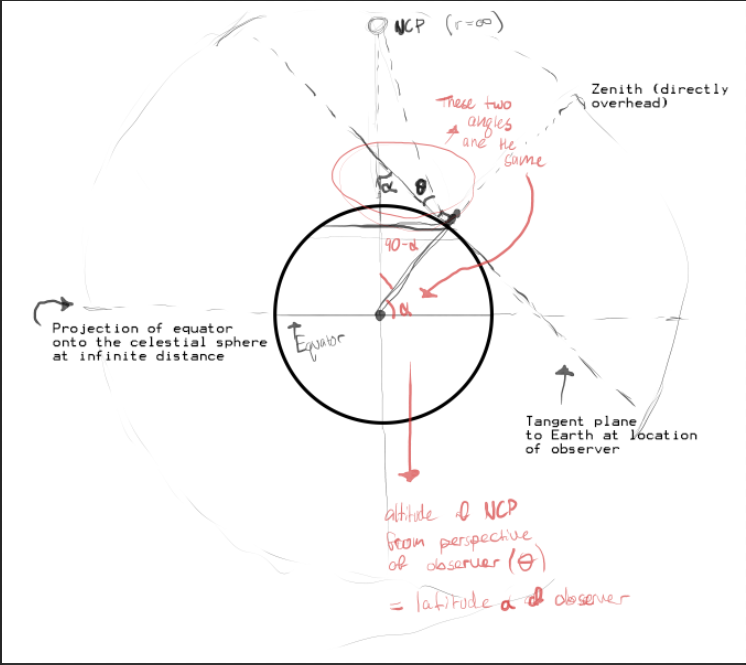 NCP (r=∞)
Zenith (directly
overhead)
These two
angles
are the
same
α
θ
90-α
α
Equator
Projection of equator
onto the celestial sphere
at infinite distance
Tangent plane
to Earth at location
of observer
altitude of NCP
from perspective
of observer (θ)
= latitude α of observer